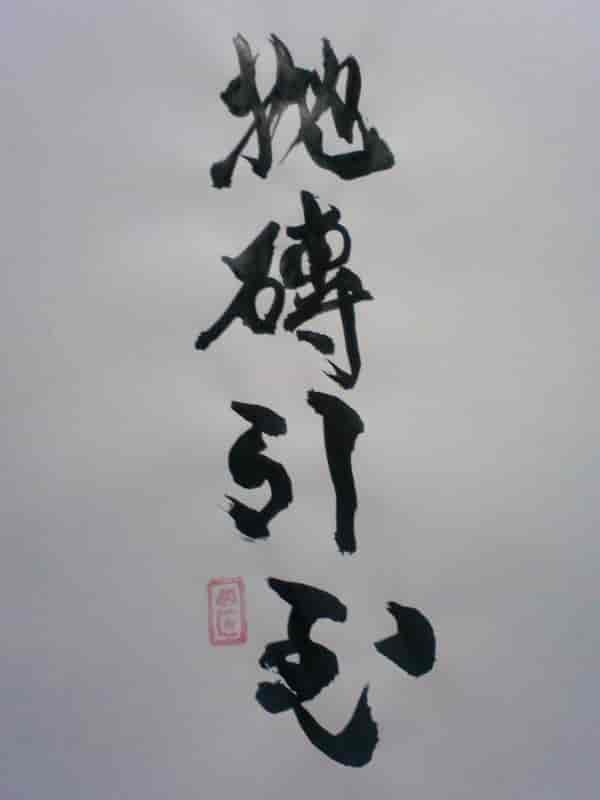 抛磚引玉